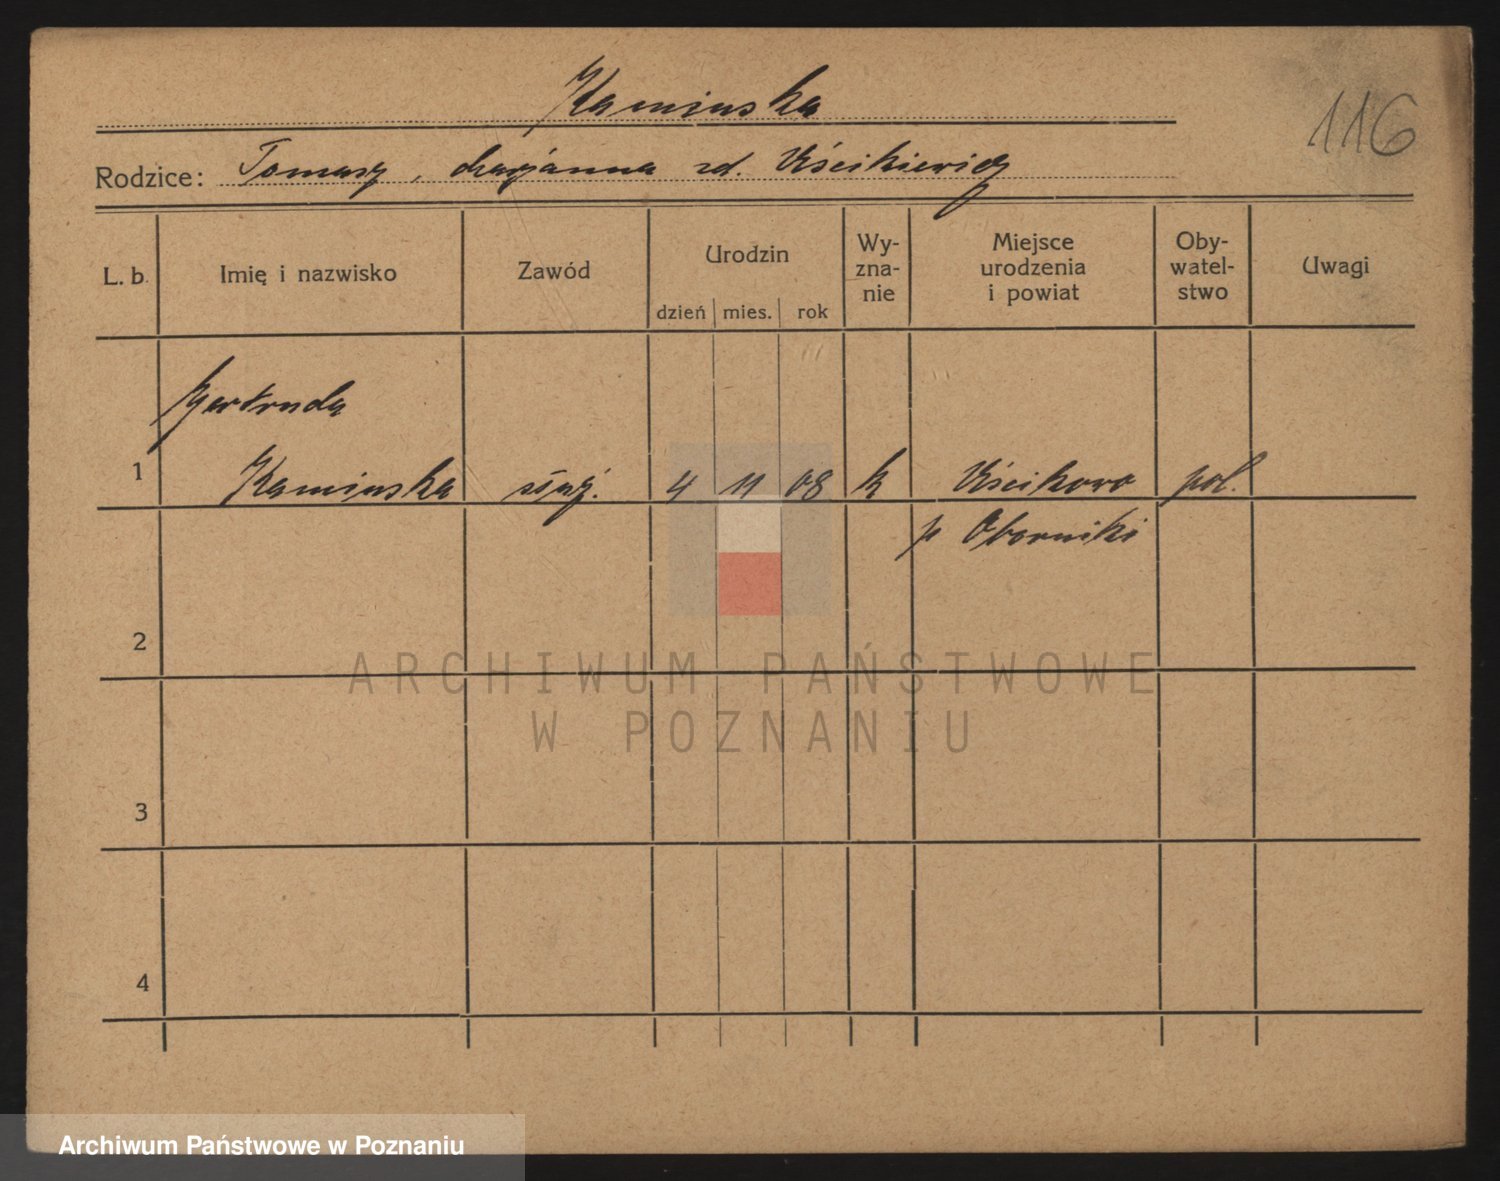 Kaminska
116
Rodzice: Tomasz, Marjanna zd. Uścikiewicz
L. b. Imię i nazwisko Zawód Urodzin dzień mies. rok Wy-zna-nie Miejsce urodzenia i powiat Oby-watel-stwo Uwagi
Gertruda
1 Kaminska służ. 4 11 08 k Uścikowo pol.
p Oborniki
2
ARCHIWUM PAŃSTWOWE
W POZNANIU
3
4
Archiwum Państwowe w Poznaniu